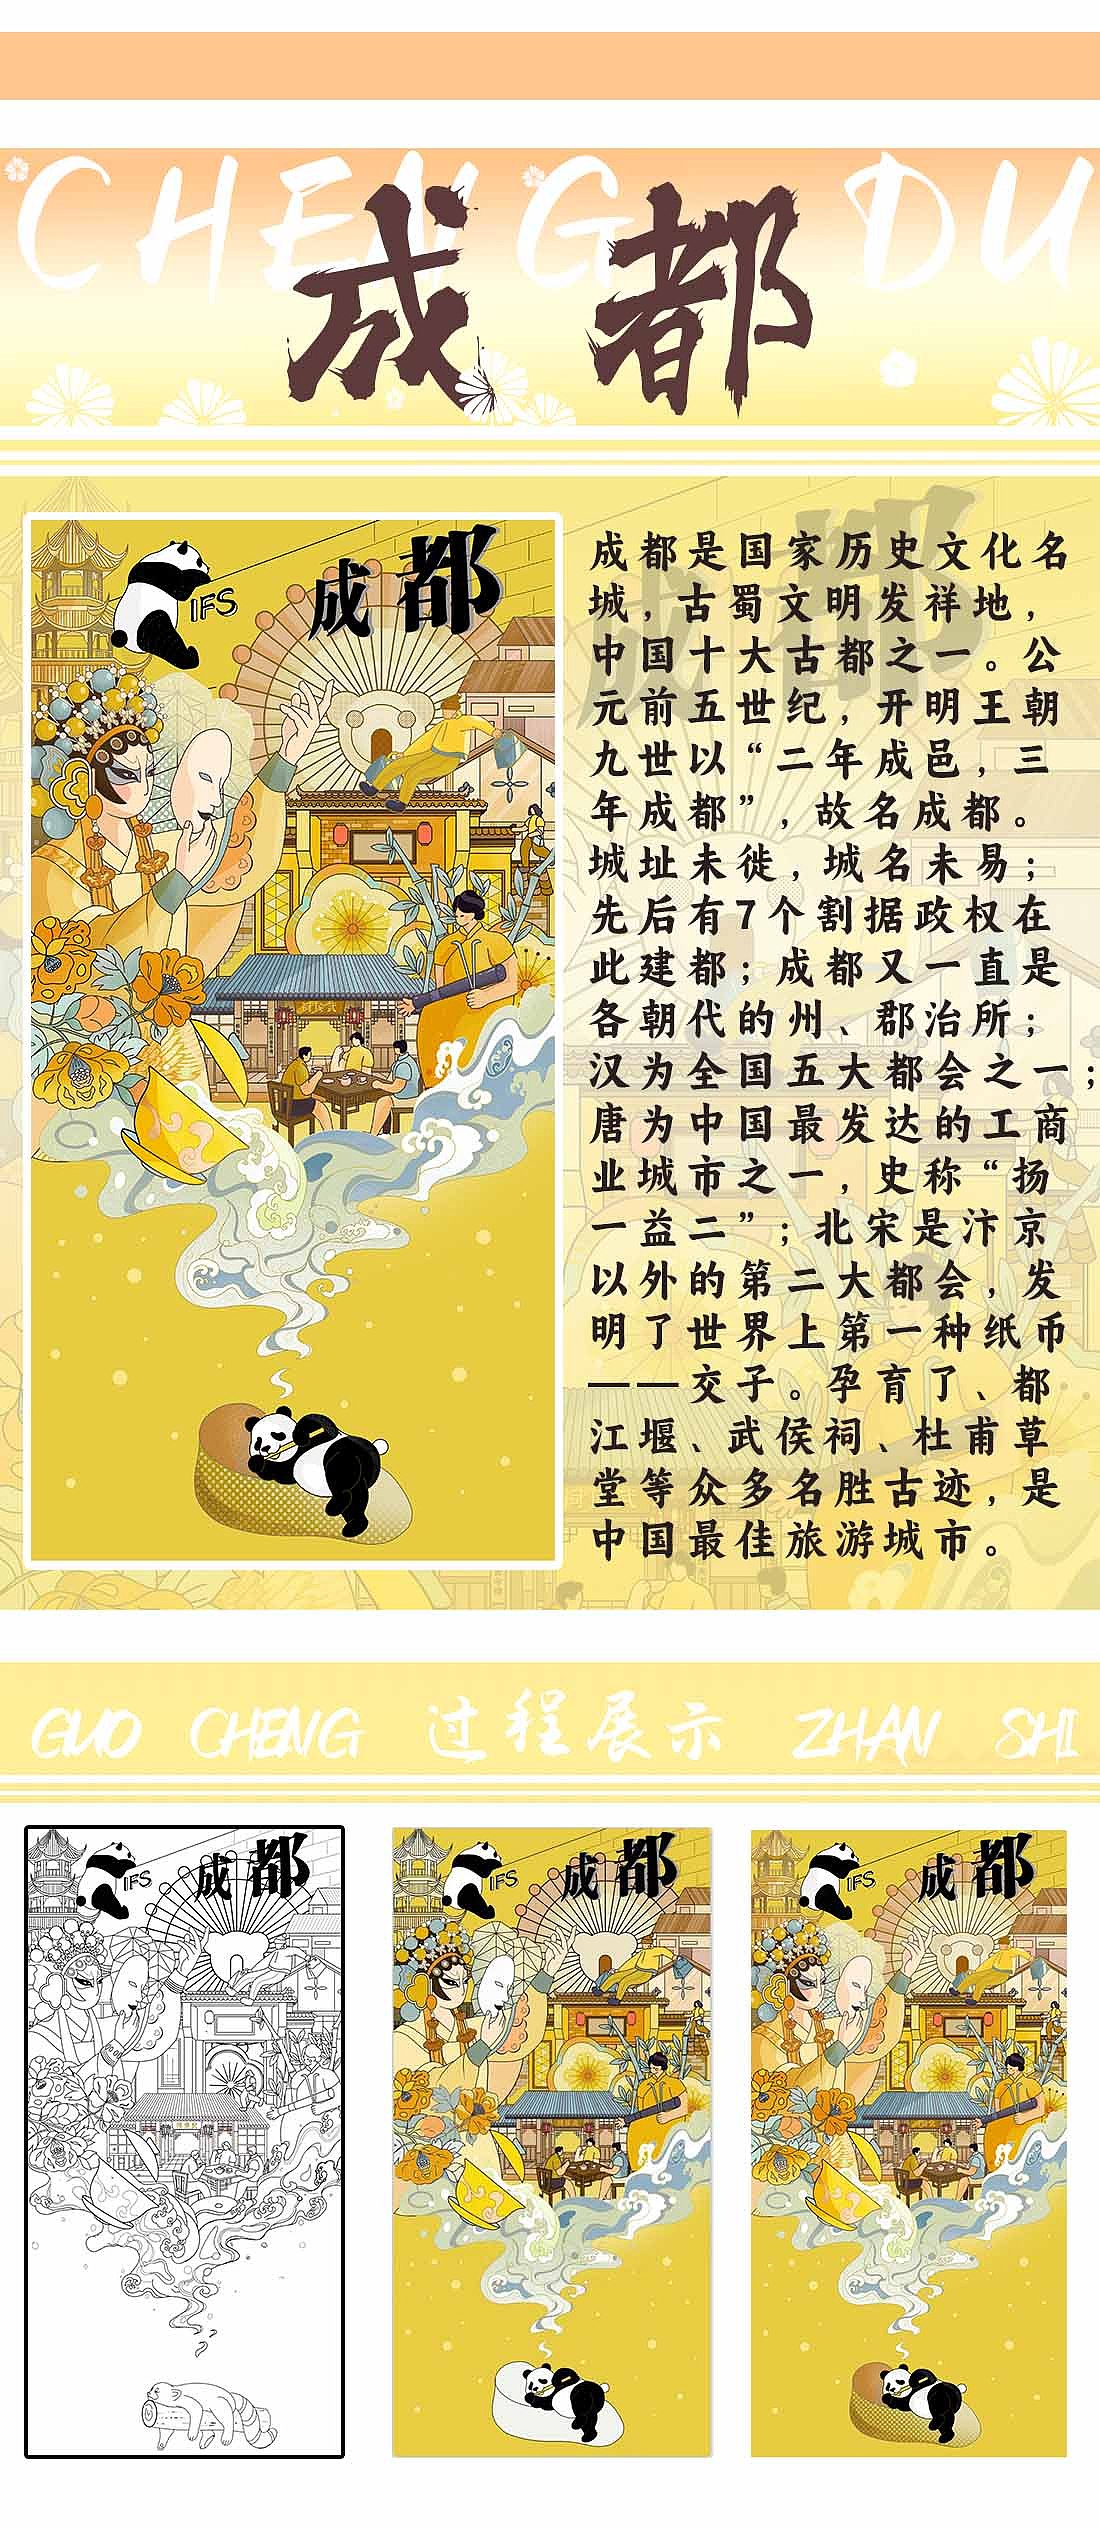 CHENG DU
成都
成都
IFS
成都是国家历史文化名
城，古蜀文明发祥地，
中国十大古都之一。公
元前五世纪，开明王朝
九世以“二年成邑，三
年成都”，故名成都。
城址未徙，城名未易；
先后有7个割据政权在
此建都；成都又一直是
各朝代的州、郡治所；
汉为全国五大都会之一；
唐为中国最发达的工商
业城市之一，史称“扬
一益二”；北宋是汴京
以外的第二大都会，发
明了世界上第一种纸币
——交子。孕育了、都
江堰、武侯祠、杜甫草
堂等众多名胜古迹，是
中国最佳旅游城市。
GUO CHENG 过程展示 ZHAN SHI
成都
IFS
成都
IFS
成都
IFS